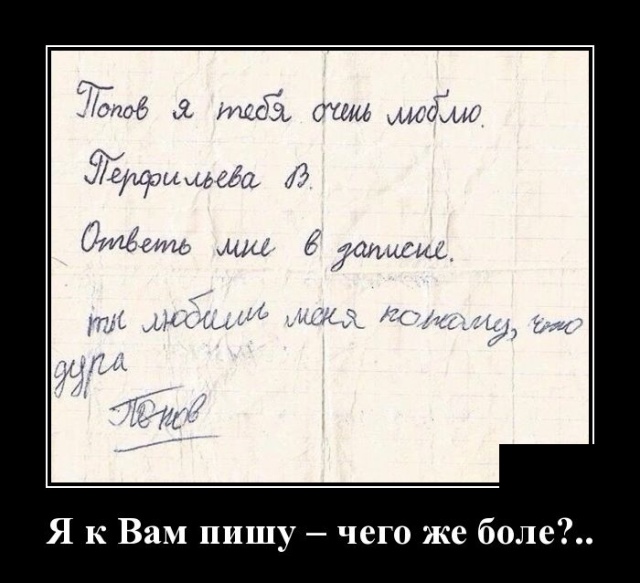 Попов я тебя очень люблю.
Перфильева В.
Ответь мне в записке.
ты любишь меня потому, что
дура
Попов
Я к Вам пишу – чего же боле?..